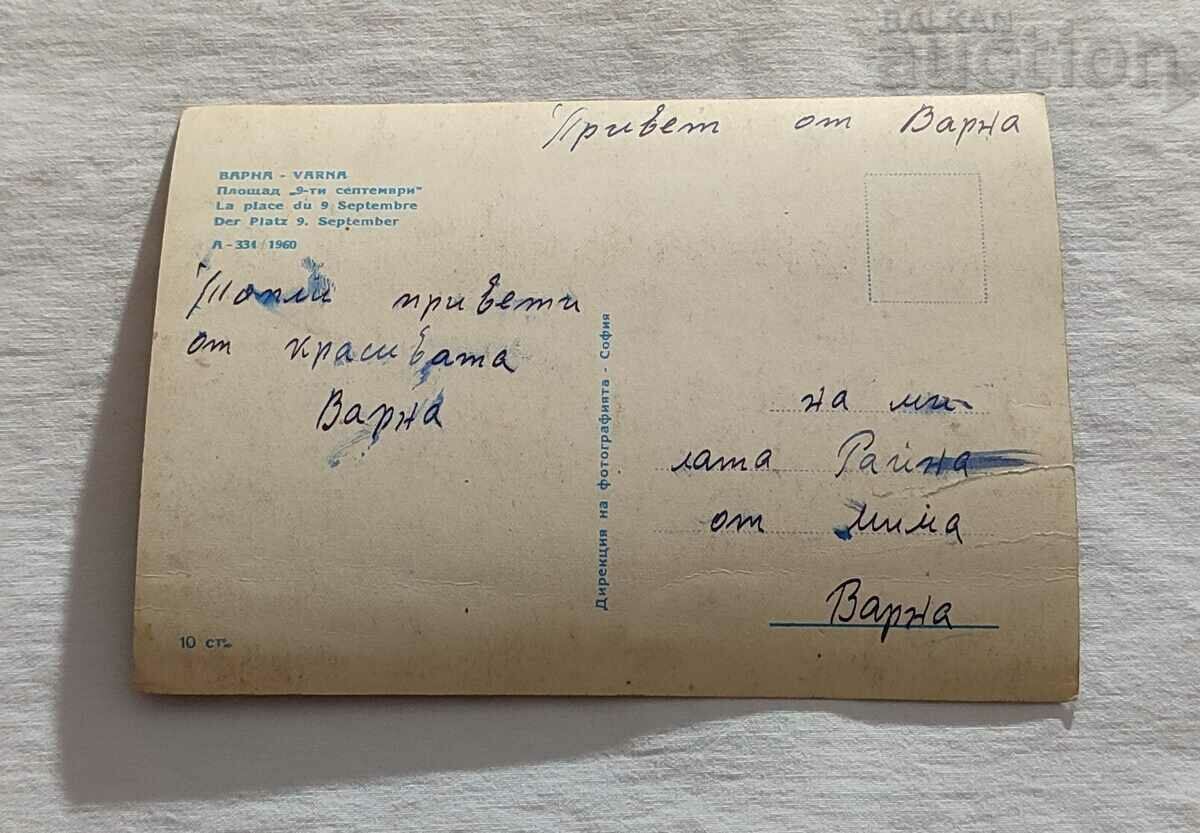 BALKAN
auction
Привет от Варна
ВАРНА - VARNA
Площад „9-ти септември"
La place du 9 Septembre
Der Platz 9. September
А - 331 / 1960
Топли привети
от красивата
Варна
Дирекция на фотографията - София
на ми-
лата Райна
от Мима
Варна
10 ст.